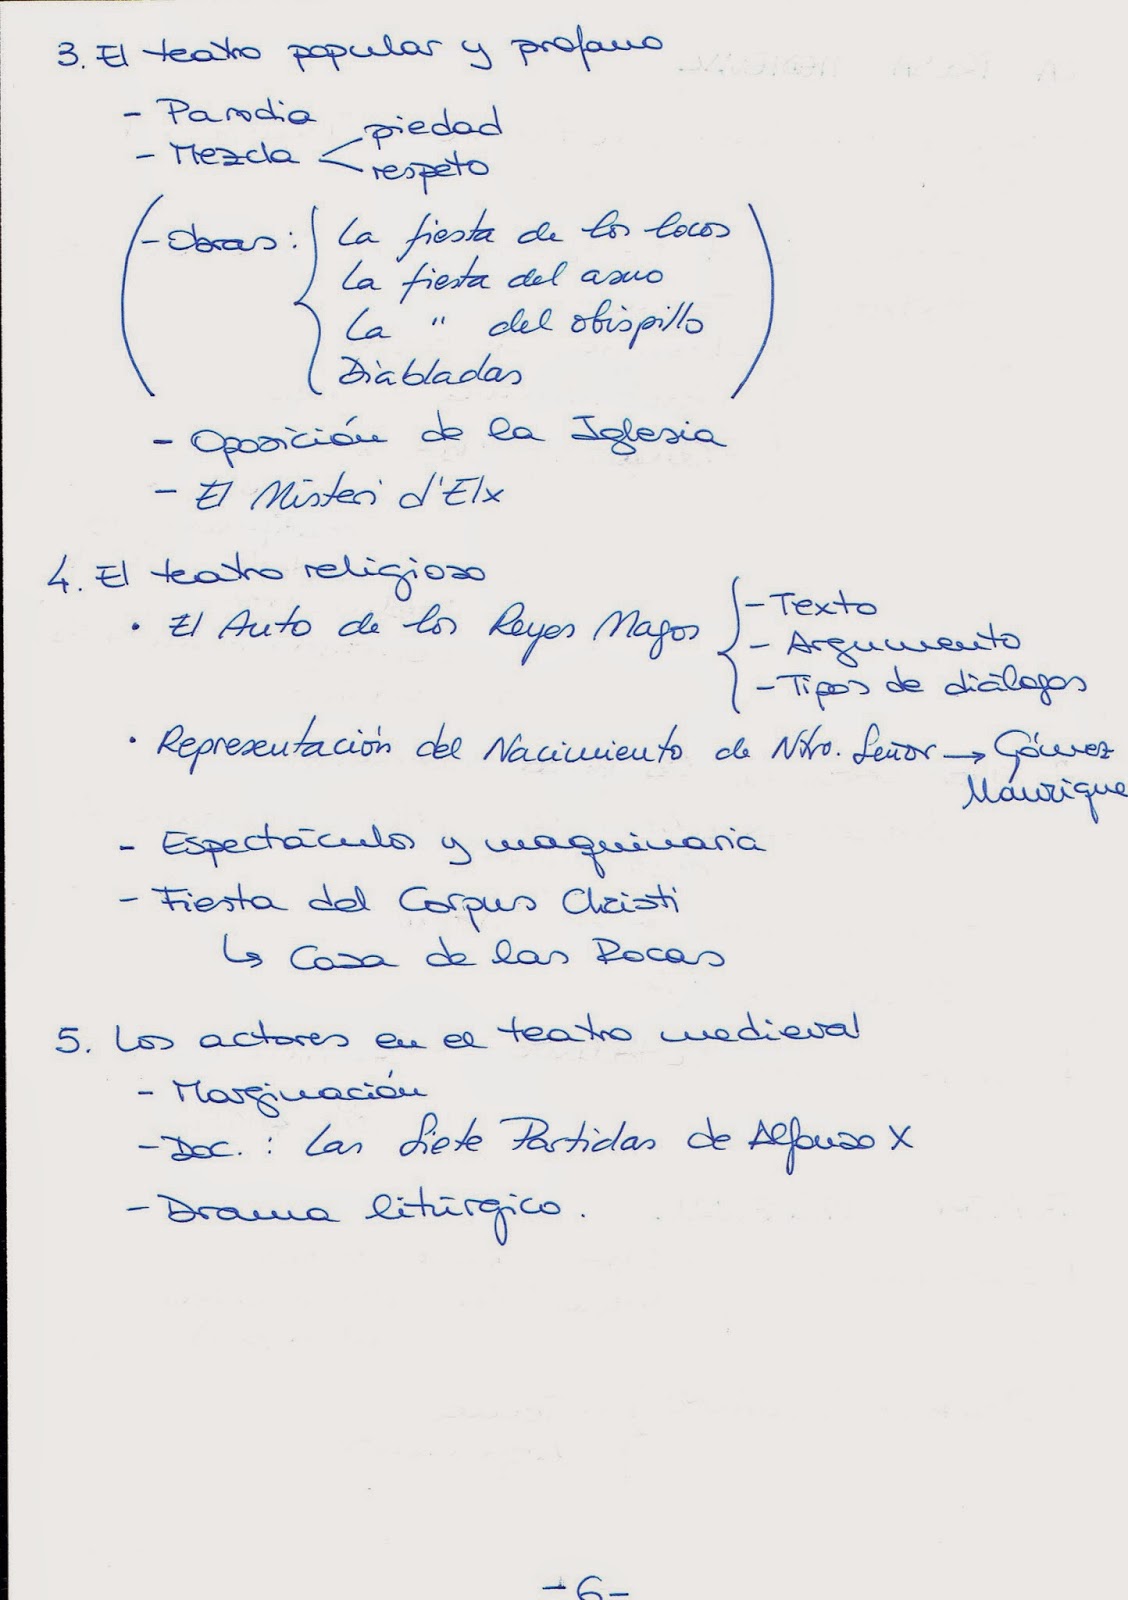 3. El teatro popular y profano
- Parodia
- Mezcla < piedad
respeto
- Obras: La fiesta de los locos
La fiesta del asno
La " del obispillo
Diabladas
- Oposición de la Iglesia
- El Misteri d'Elx
4. El teatro religioso
• El Auto de los Reyes Magos { - Texto
- Argumento
- Tipos de diálogos
• Representación del Nacimiento de Ntro. Señor → Gómez
Manrique
- Espectáculos y maquinaria
- Fiesta del Corpus Christi
↳ Casa de las Rocas
5. Los actores en el teatro medieval
- Marginación
- Doc.: Las Siete Partidas de Alfonso X
- Drama litúrgico.
- 6 -